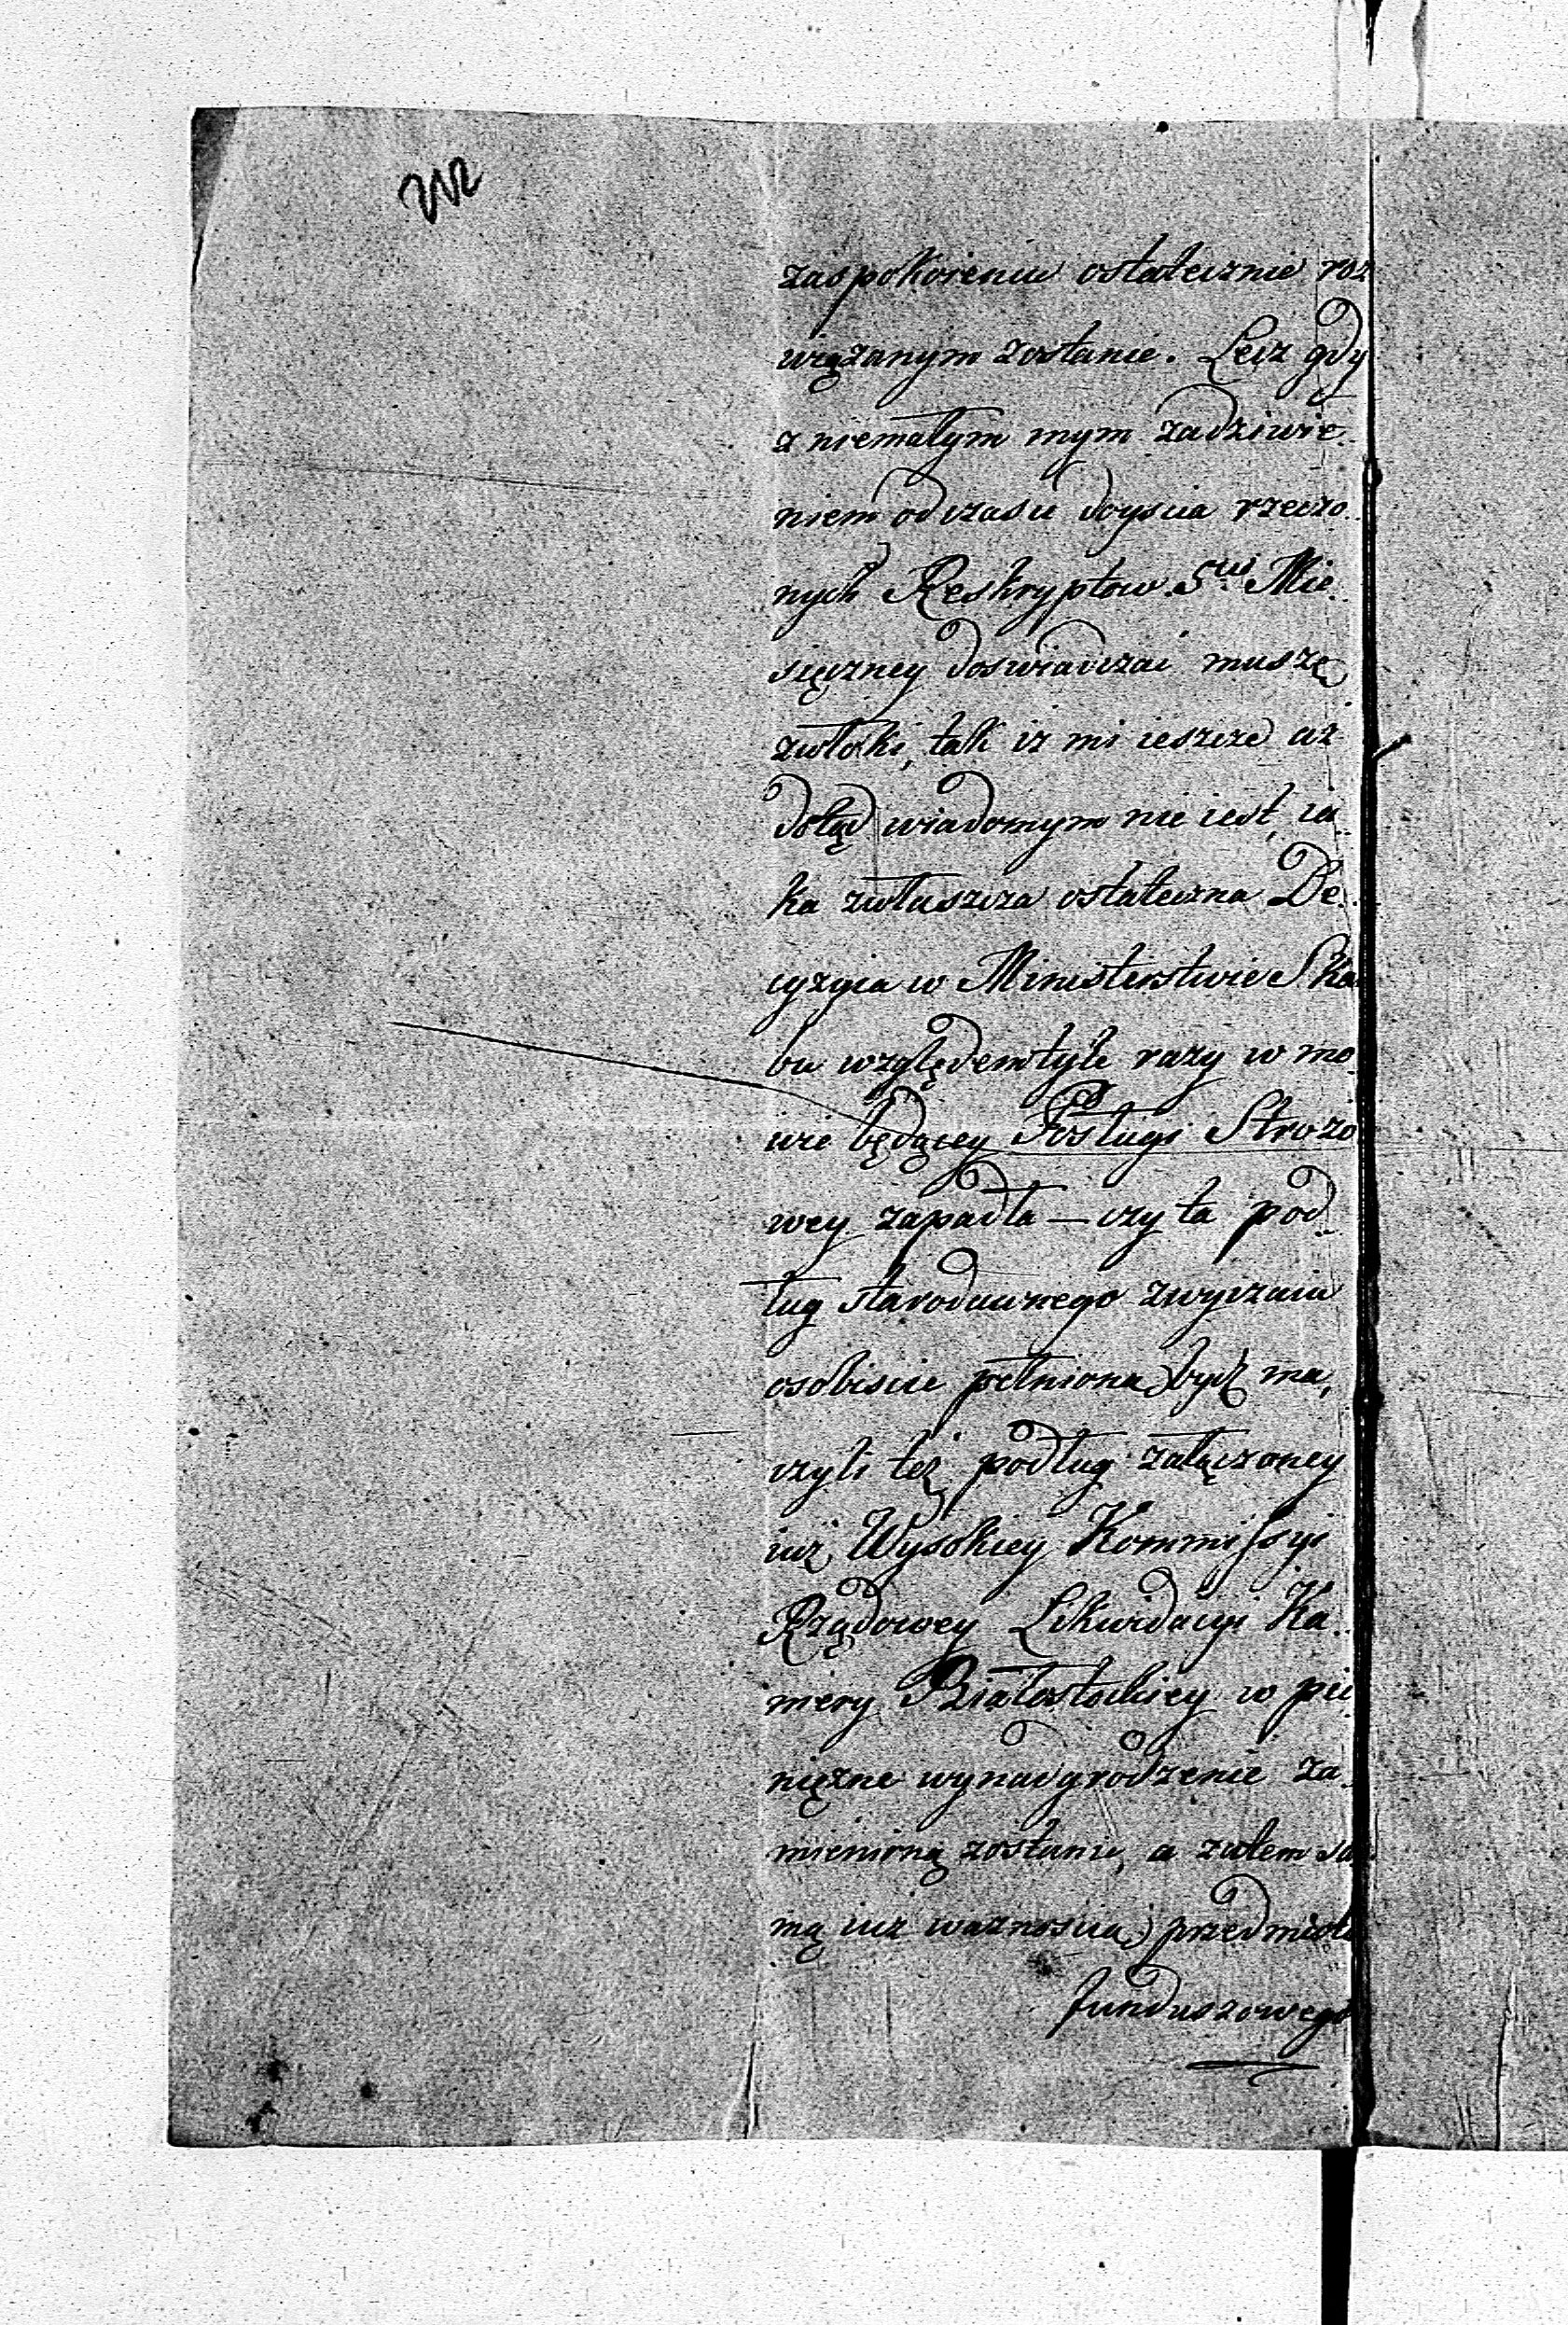 212
zaspokoieniu ostatecznie roz
wiązanym zostanie. Lecz gdy
z niemałym mym zadziwie.
niem od czasu doyscia rzeczo.
nych Reskryptow. 5cio Mie.
sięczney doswiadczać muszę
zwłoki, tak iz mi ieszcze aż
dotąd wiadomym nie iest, ia.
ka zwłaszcza ostateczna De.
cyzyia w Ministerstwie Skar
bu względem tyle razy w mo
wie będącey Posługi Strożo
wey zapadła — czy ta pod.
ług starodawnego zwyczaiu
osobiscie pełniona bydź ma,
czyli też podług załączoney
iuż Wysokiey Kommissyi
Rządowey Likwidacyi Ka.
mery Białostockiey w pie
niężne wynadgrodzenie za.
mienioną zostanie, a zatem sa
mą iuż waznoscią przedmiotu
funduszowego